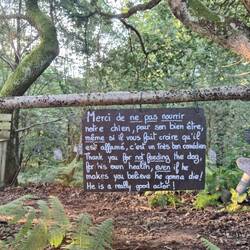 Merci de ne pas nourrir
notre chien, pour son bien être,
même si il vous fait croire qu'il
est affamé, c'est un très bon comédien
Thank you for not feeding the dog,
for his own health, even if he
makes you believe he gonna die!
He is a really good actor!